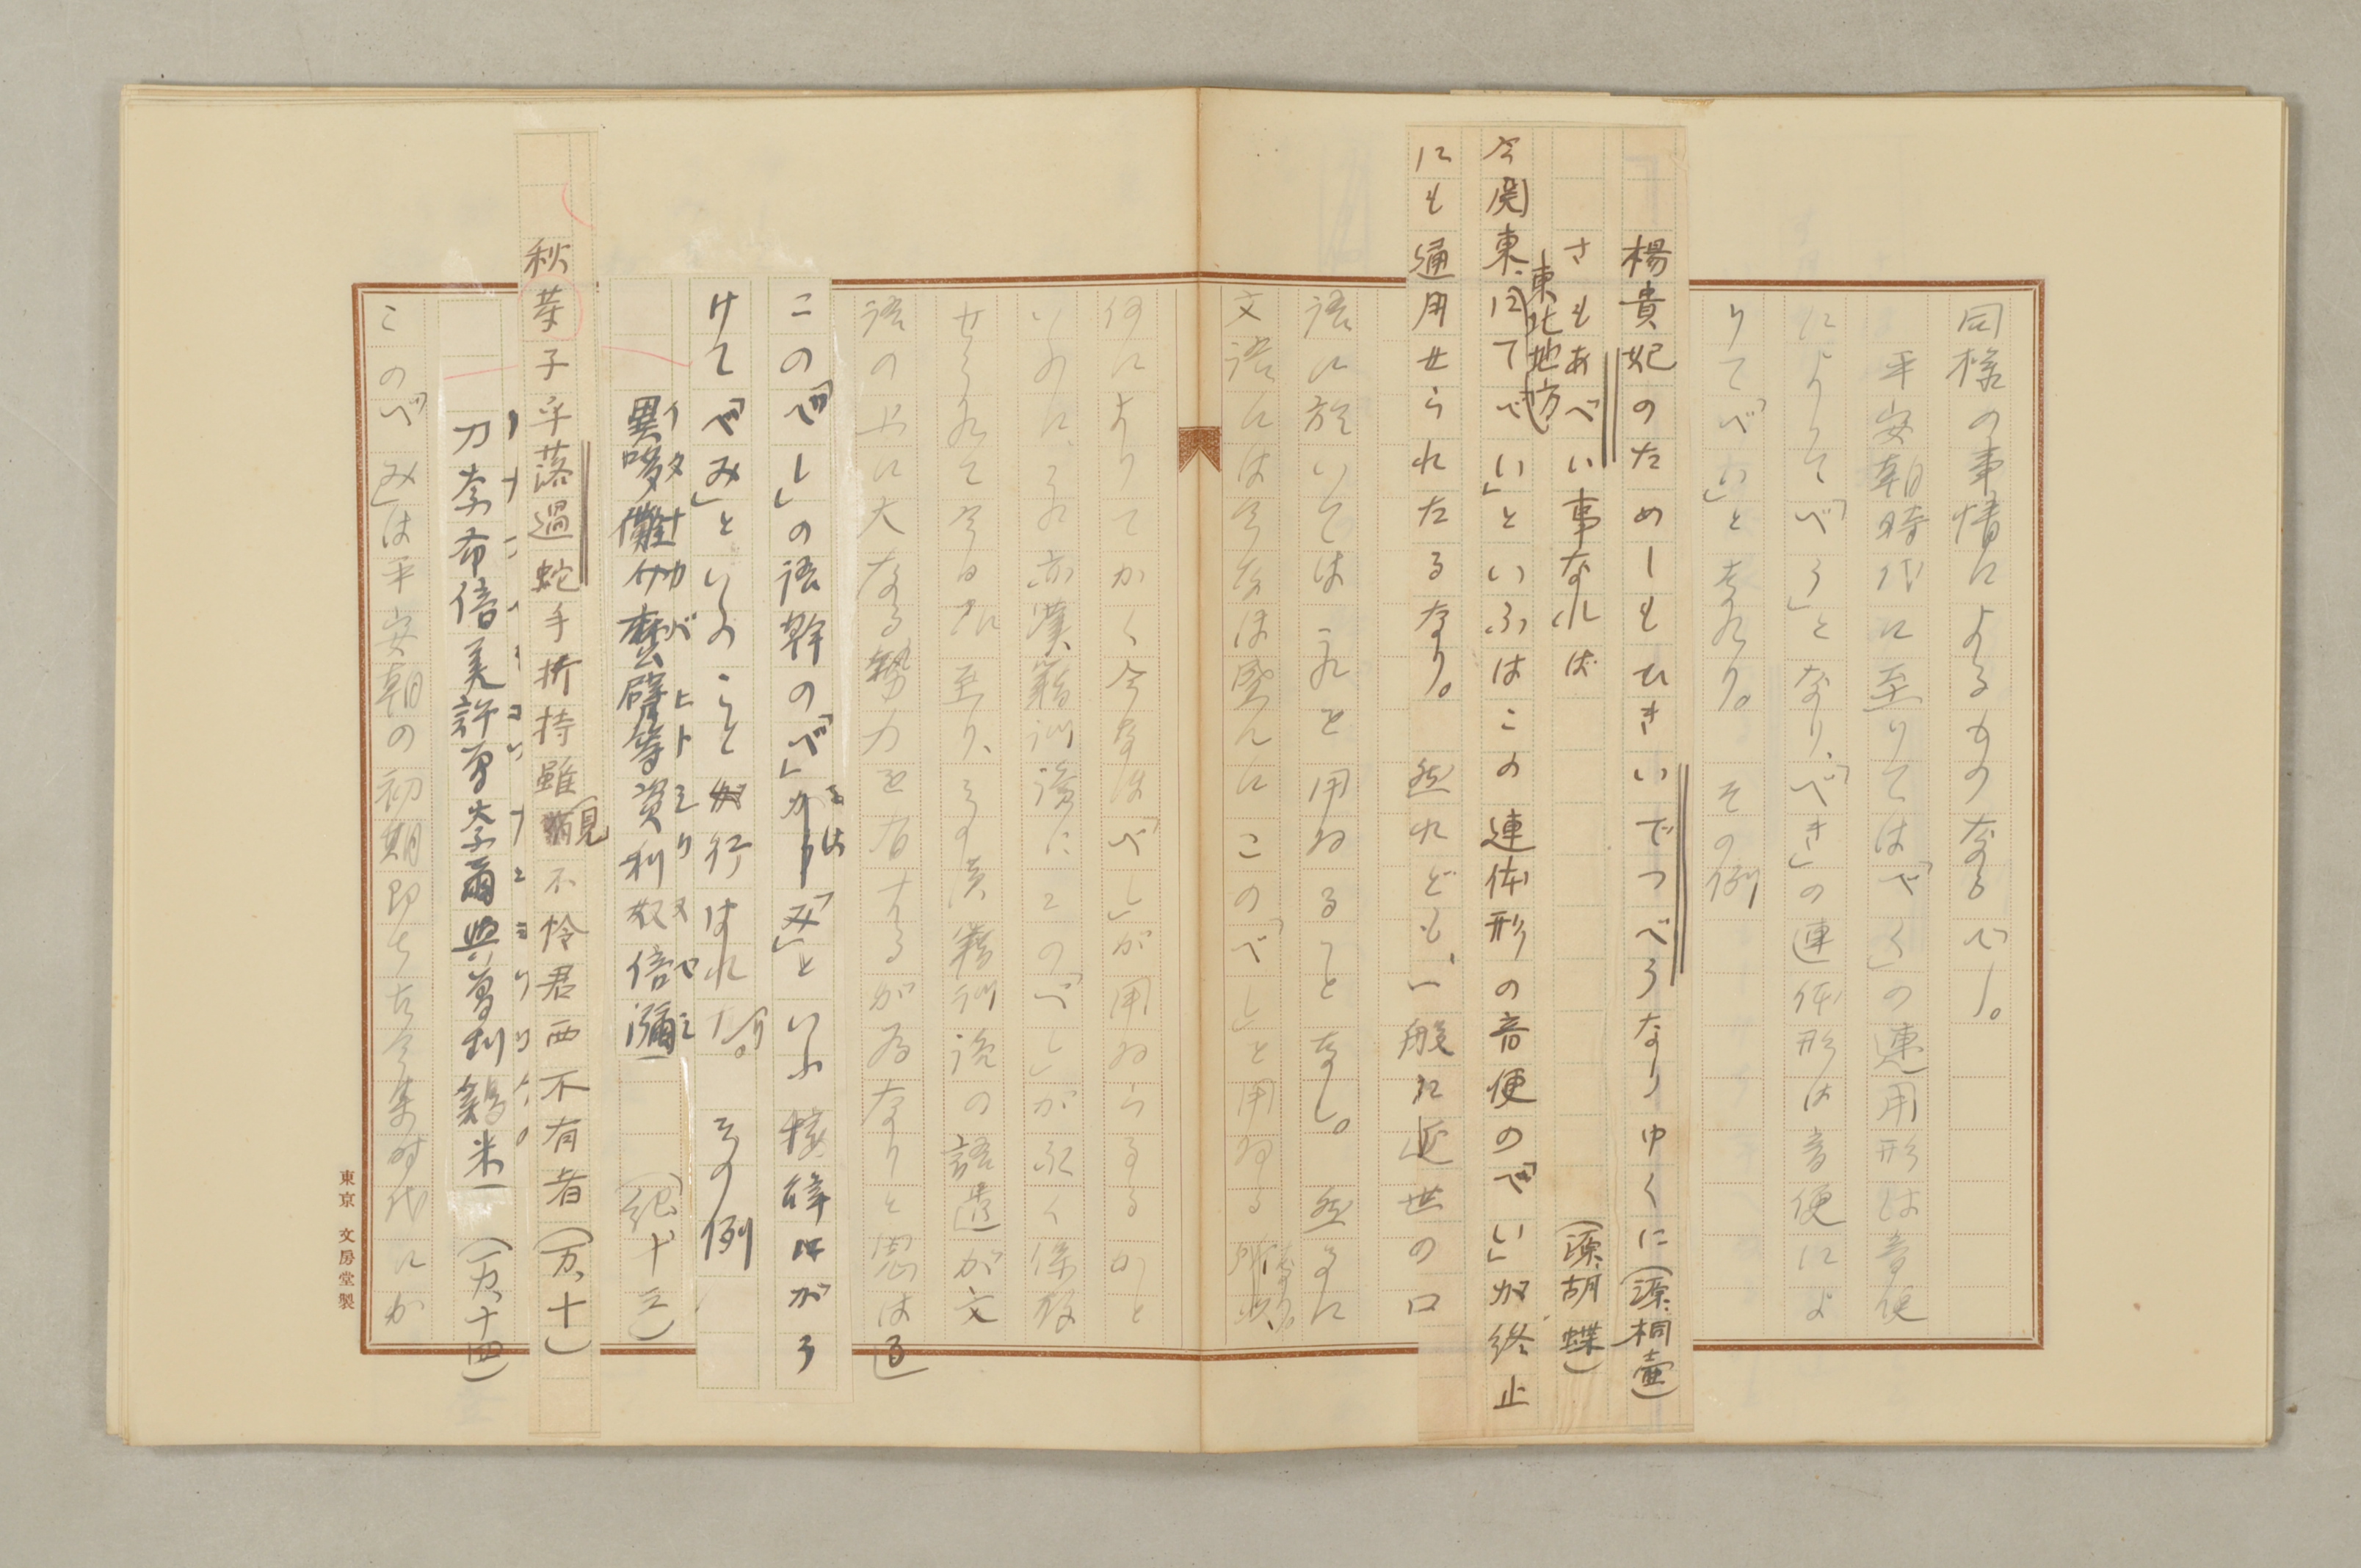 同様の事情によるものなるべし。
平安朝時代に至りては「べく」の連用形は音便
によりて「べう」となり、「べき」の連体形は音便によ
りて「べい」となれり。その例
楊貴妃のためしもひきいでつべうなりゆくに(源、桐壷)
さもあべい事なれば(源、胡蝶)
今関東、東北地方にて「べい」といふはこの連体形の音便の「べい」が終止
にも通用せられたるなり。然れども、一般に近世の口
語に於いては之れを用ゐること なし。然るに
文語には今なほ盛んにこの「べし」を用ゐる
何によりてかく今なほ「べし」が用ゐらるるかと
いふに、これ亦漢籍訓読にこの「べし」が永く保存
せられて今日に至り、その漢籍訓読の語遣が文
語の上に大なる勢力を有するが為なりと思はる
この「べし」の語幹の「べ」は「み」といふ接辞をう
けて「べみ」といふこと行はれたり。その例
異哆儺伽麼臂等資利奴倍瀰(紀十三)
イタナカバヒトシリヌベミ
秋芽子乎落過蛇手折持雖見不怜君西不有者(万、十)
(万、十四)
この「べみ」は平安朝の初期即ち古今集時代にか
東京 文房堂製